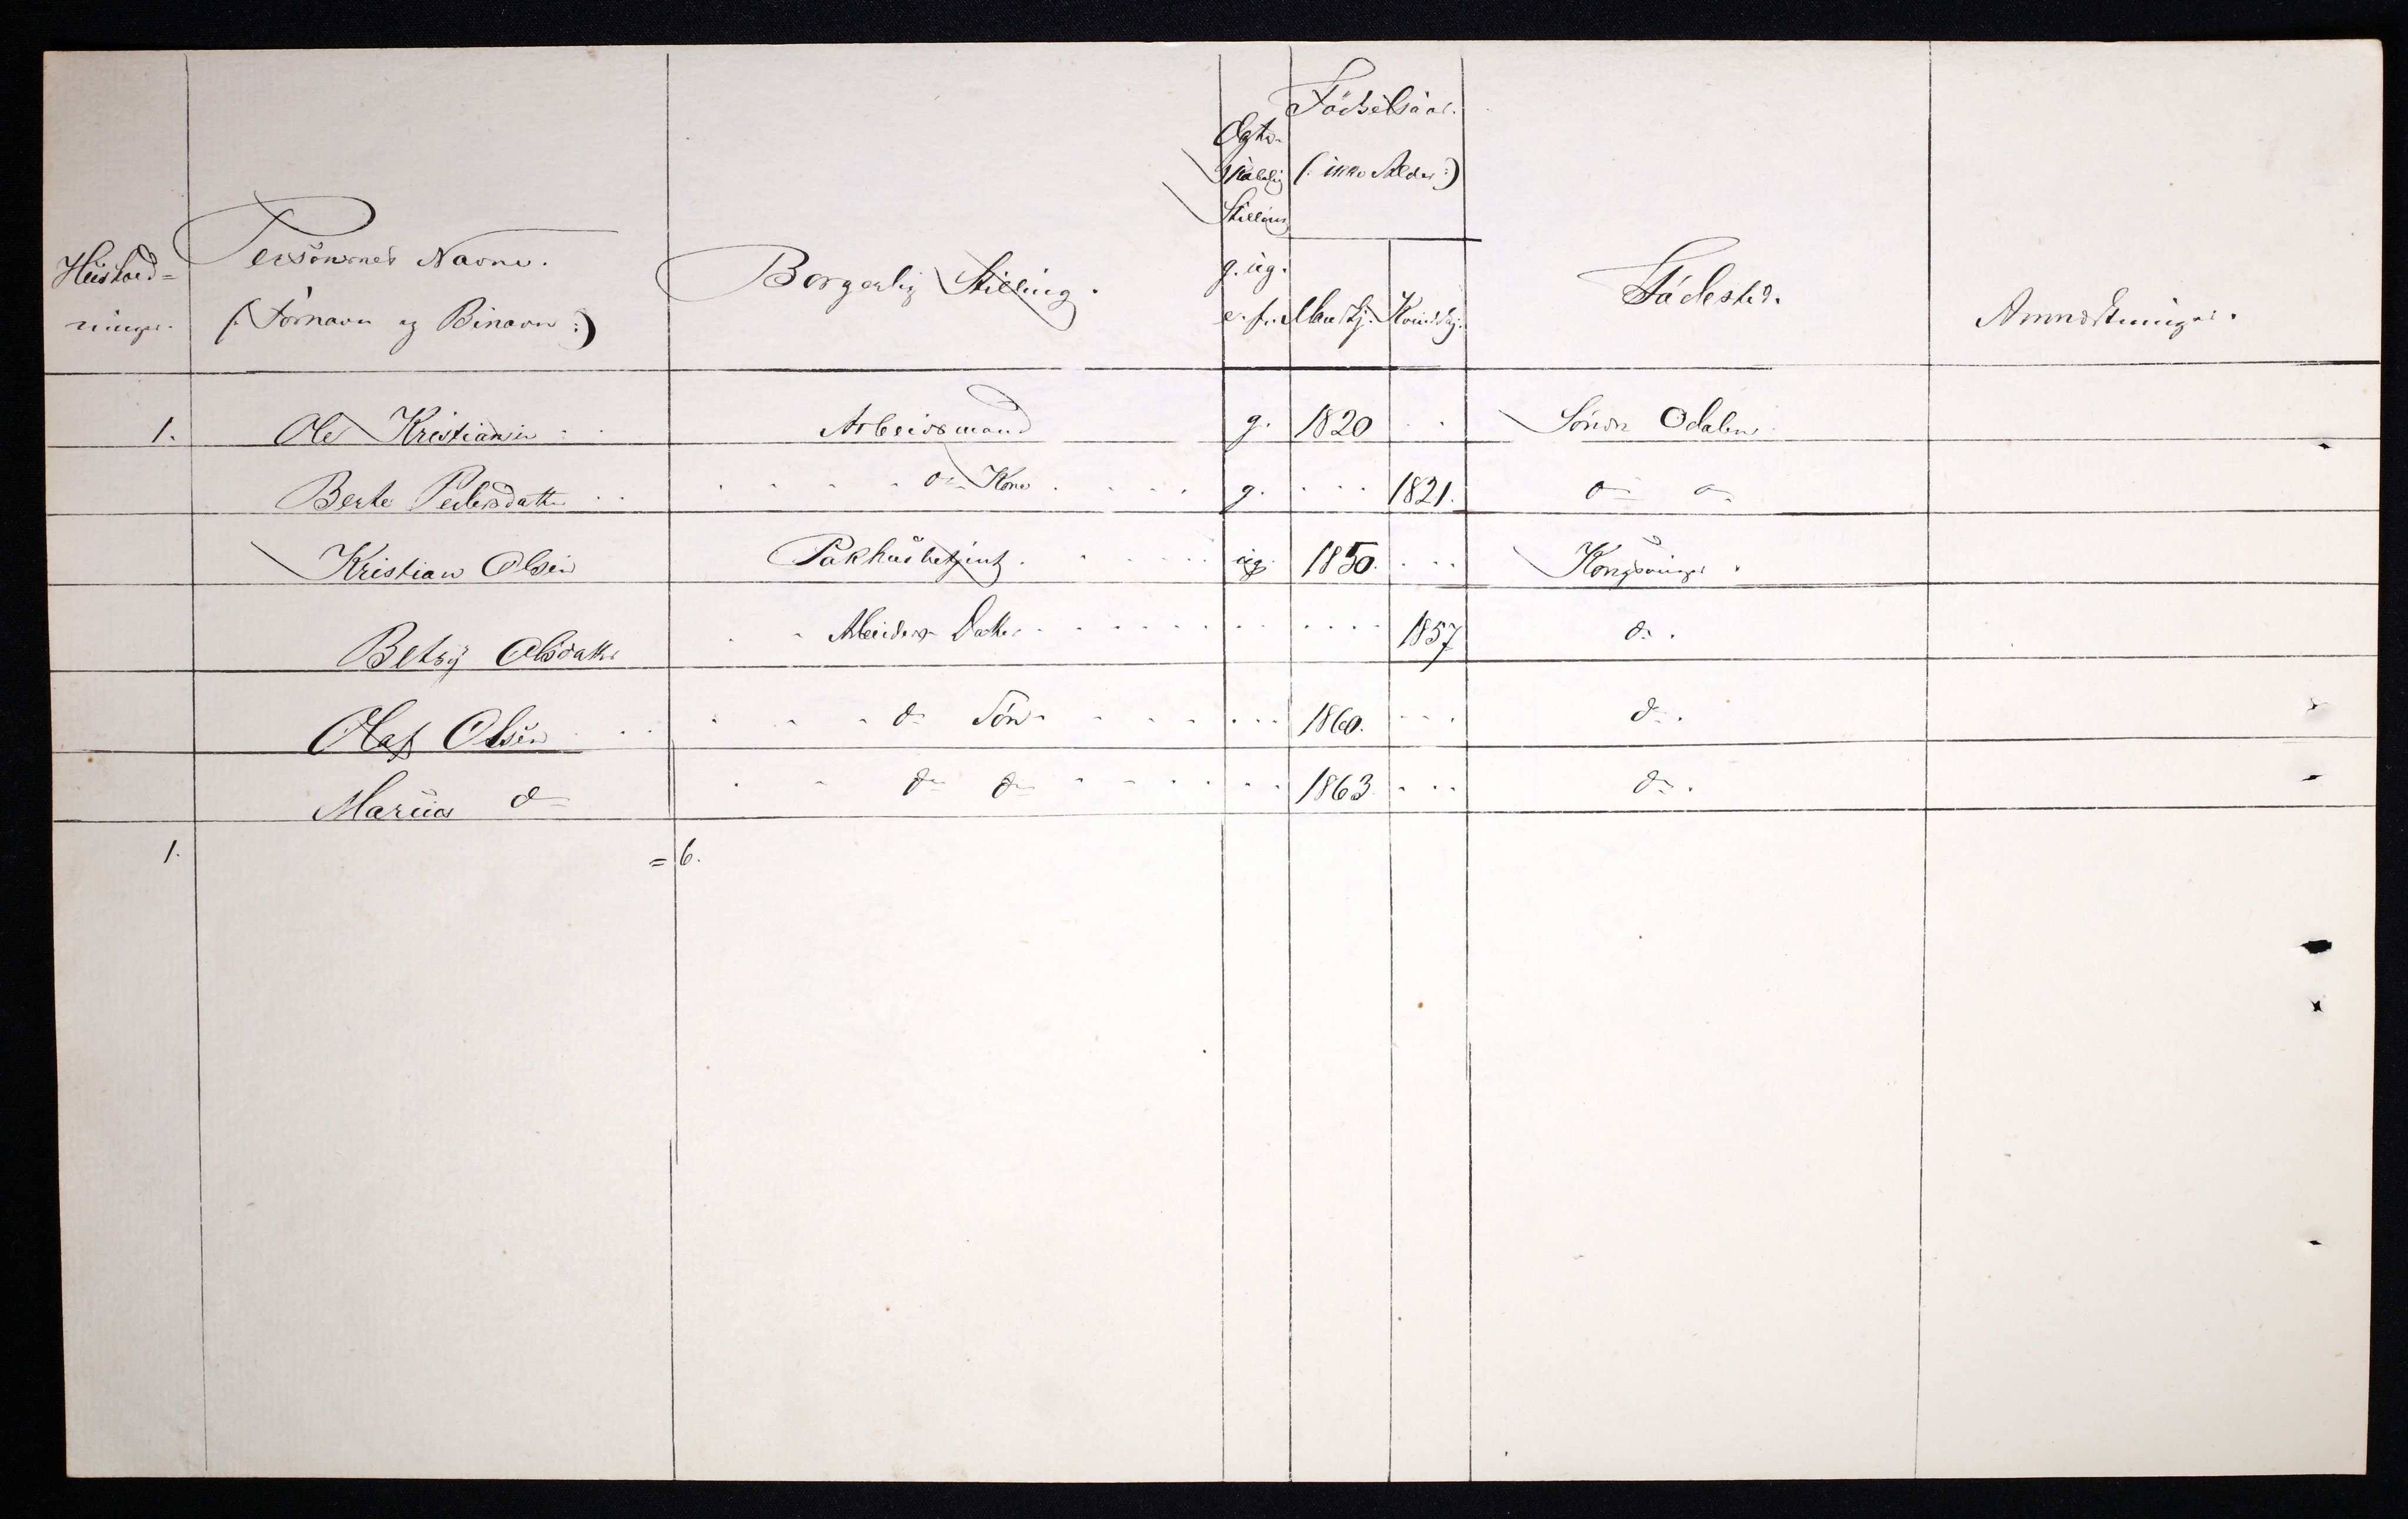 Huushold=
ninger.
Personernes Navne.
(: Fornavn og Binavn :)
Borgerlig Stilling.
Ægte-
skabelig
Stilling
g. ug.
e. f.
Födselsaar.
(: ikke Alder :)
Mandkj. Kvindekj.
Födested.
Anmærkninger.
1. Ole Kristiansen Arbeidsmand g. 1820 Söndre Odalen
Berte Pedersdatter do Kone g. 1821. do do
Kristian Olsen Pakhusbetjent. ug. 1850. Kongsvinger.
Betsy Olsdatter Arbeiders Datter 1857 do.
Olaf Olsen do Sön 1860. do.
Marius do do do 1863. do.
1. = 6.